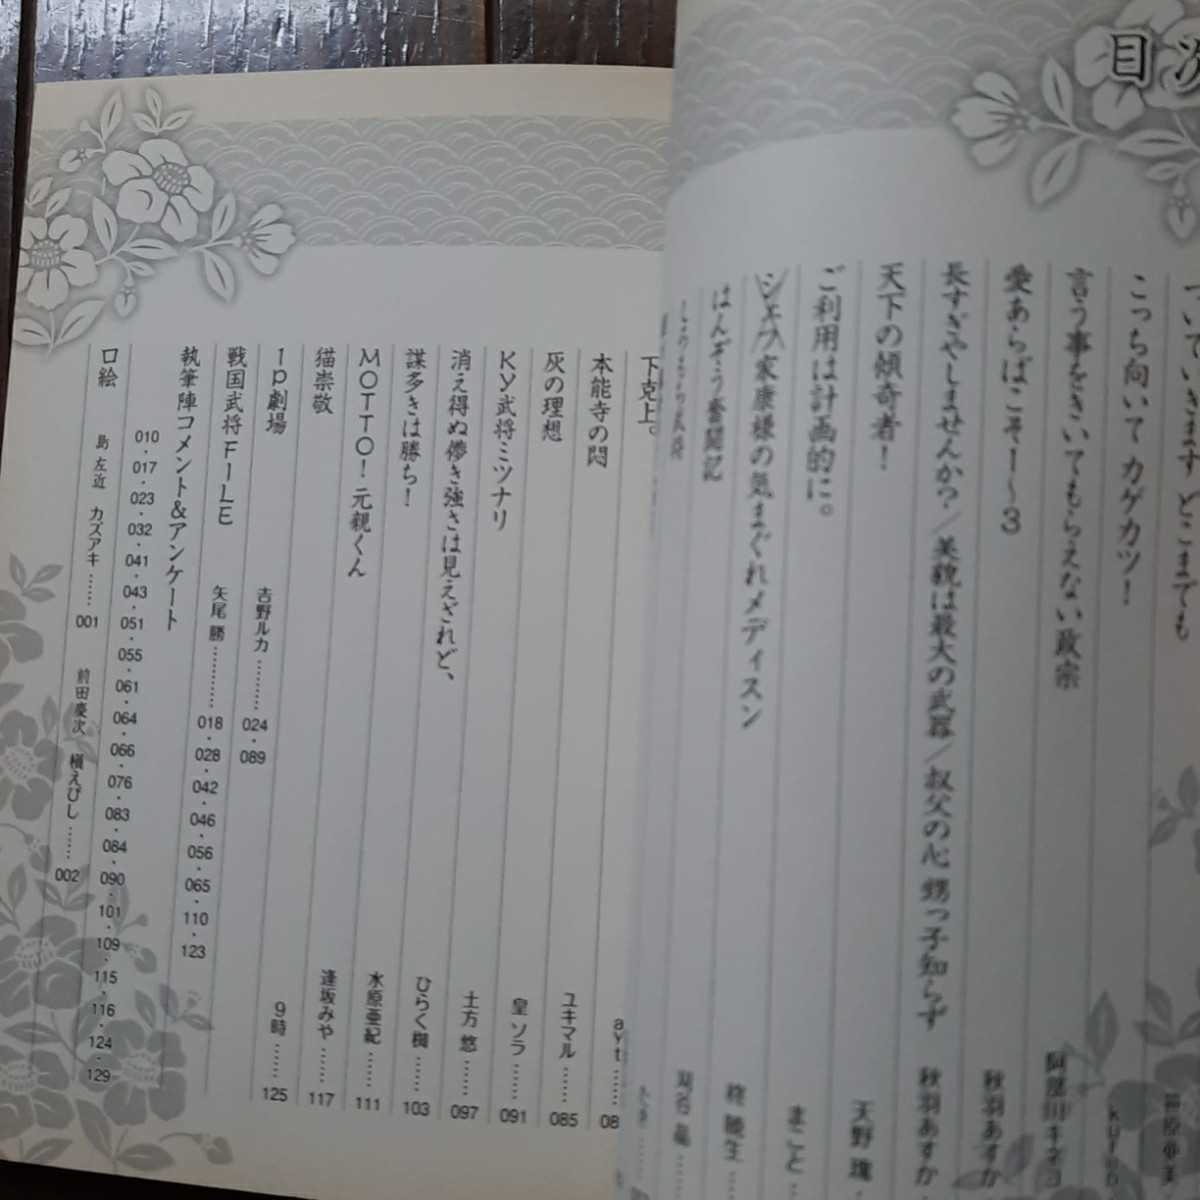 目次
ついていきます どこまでも
笹原亜美
こっち向いてカゲカツ！
kuron
言う事をきいてもらえない政宗
阿部川キネコ
愛あらばこそ1～3
秋羽あすか
長すぎやしませんか？／美貌は最大の武器／叔父の心 甥っ子知らず
秋羽あすか
天下の傾奇者！
天野瑰
ご利用は計画的に。
まこと
シェフ家康様の気まぐれメディスン
柊 暁生
はんぞう奮闘記
下克上。
本能寺の悶
ayt
灰の理想
ユキマル……085
KY武将ミツナリ
皇 ソラ……091
消え得ぬ儚き強さは見えざれど、
土方 悠……097
謀多きは勝ち！
ひらく樹……103
MOTTO！元親くん
水原亜紀……111
猫崇敬
逢坂みや……117
1p劇場
9時……125
吉野ルカ………024・089
戦国武将FILE
矢尾 勝…………018・028・042・046・056・065・110・123
執筆陣コメント&アンケート
010・017・023・032・041・043・051・055・061・064・066・076・083・084・090・101・109・115・116・124・129
口絵
島 左近 カズアキ……001
前田慶次 槇えびし……002